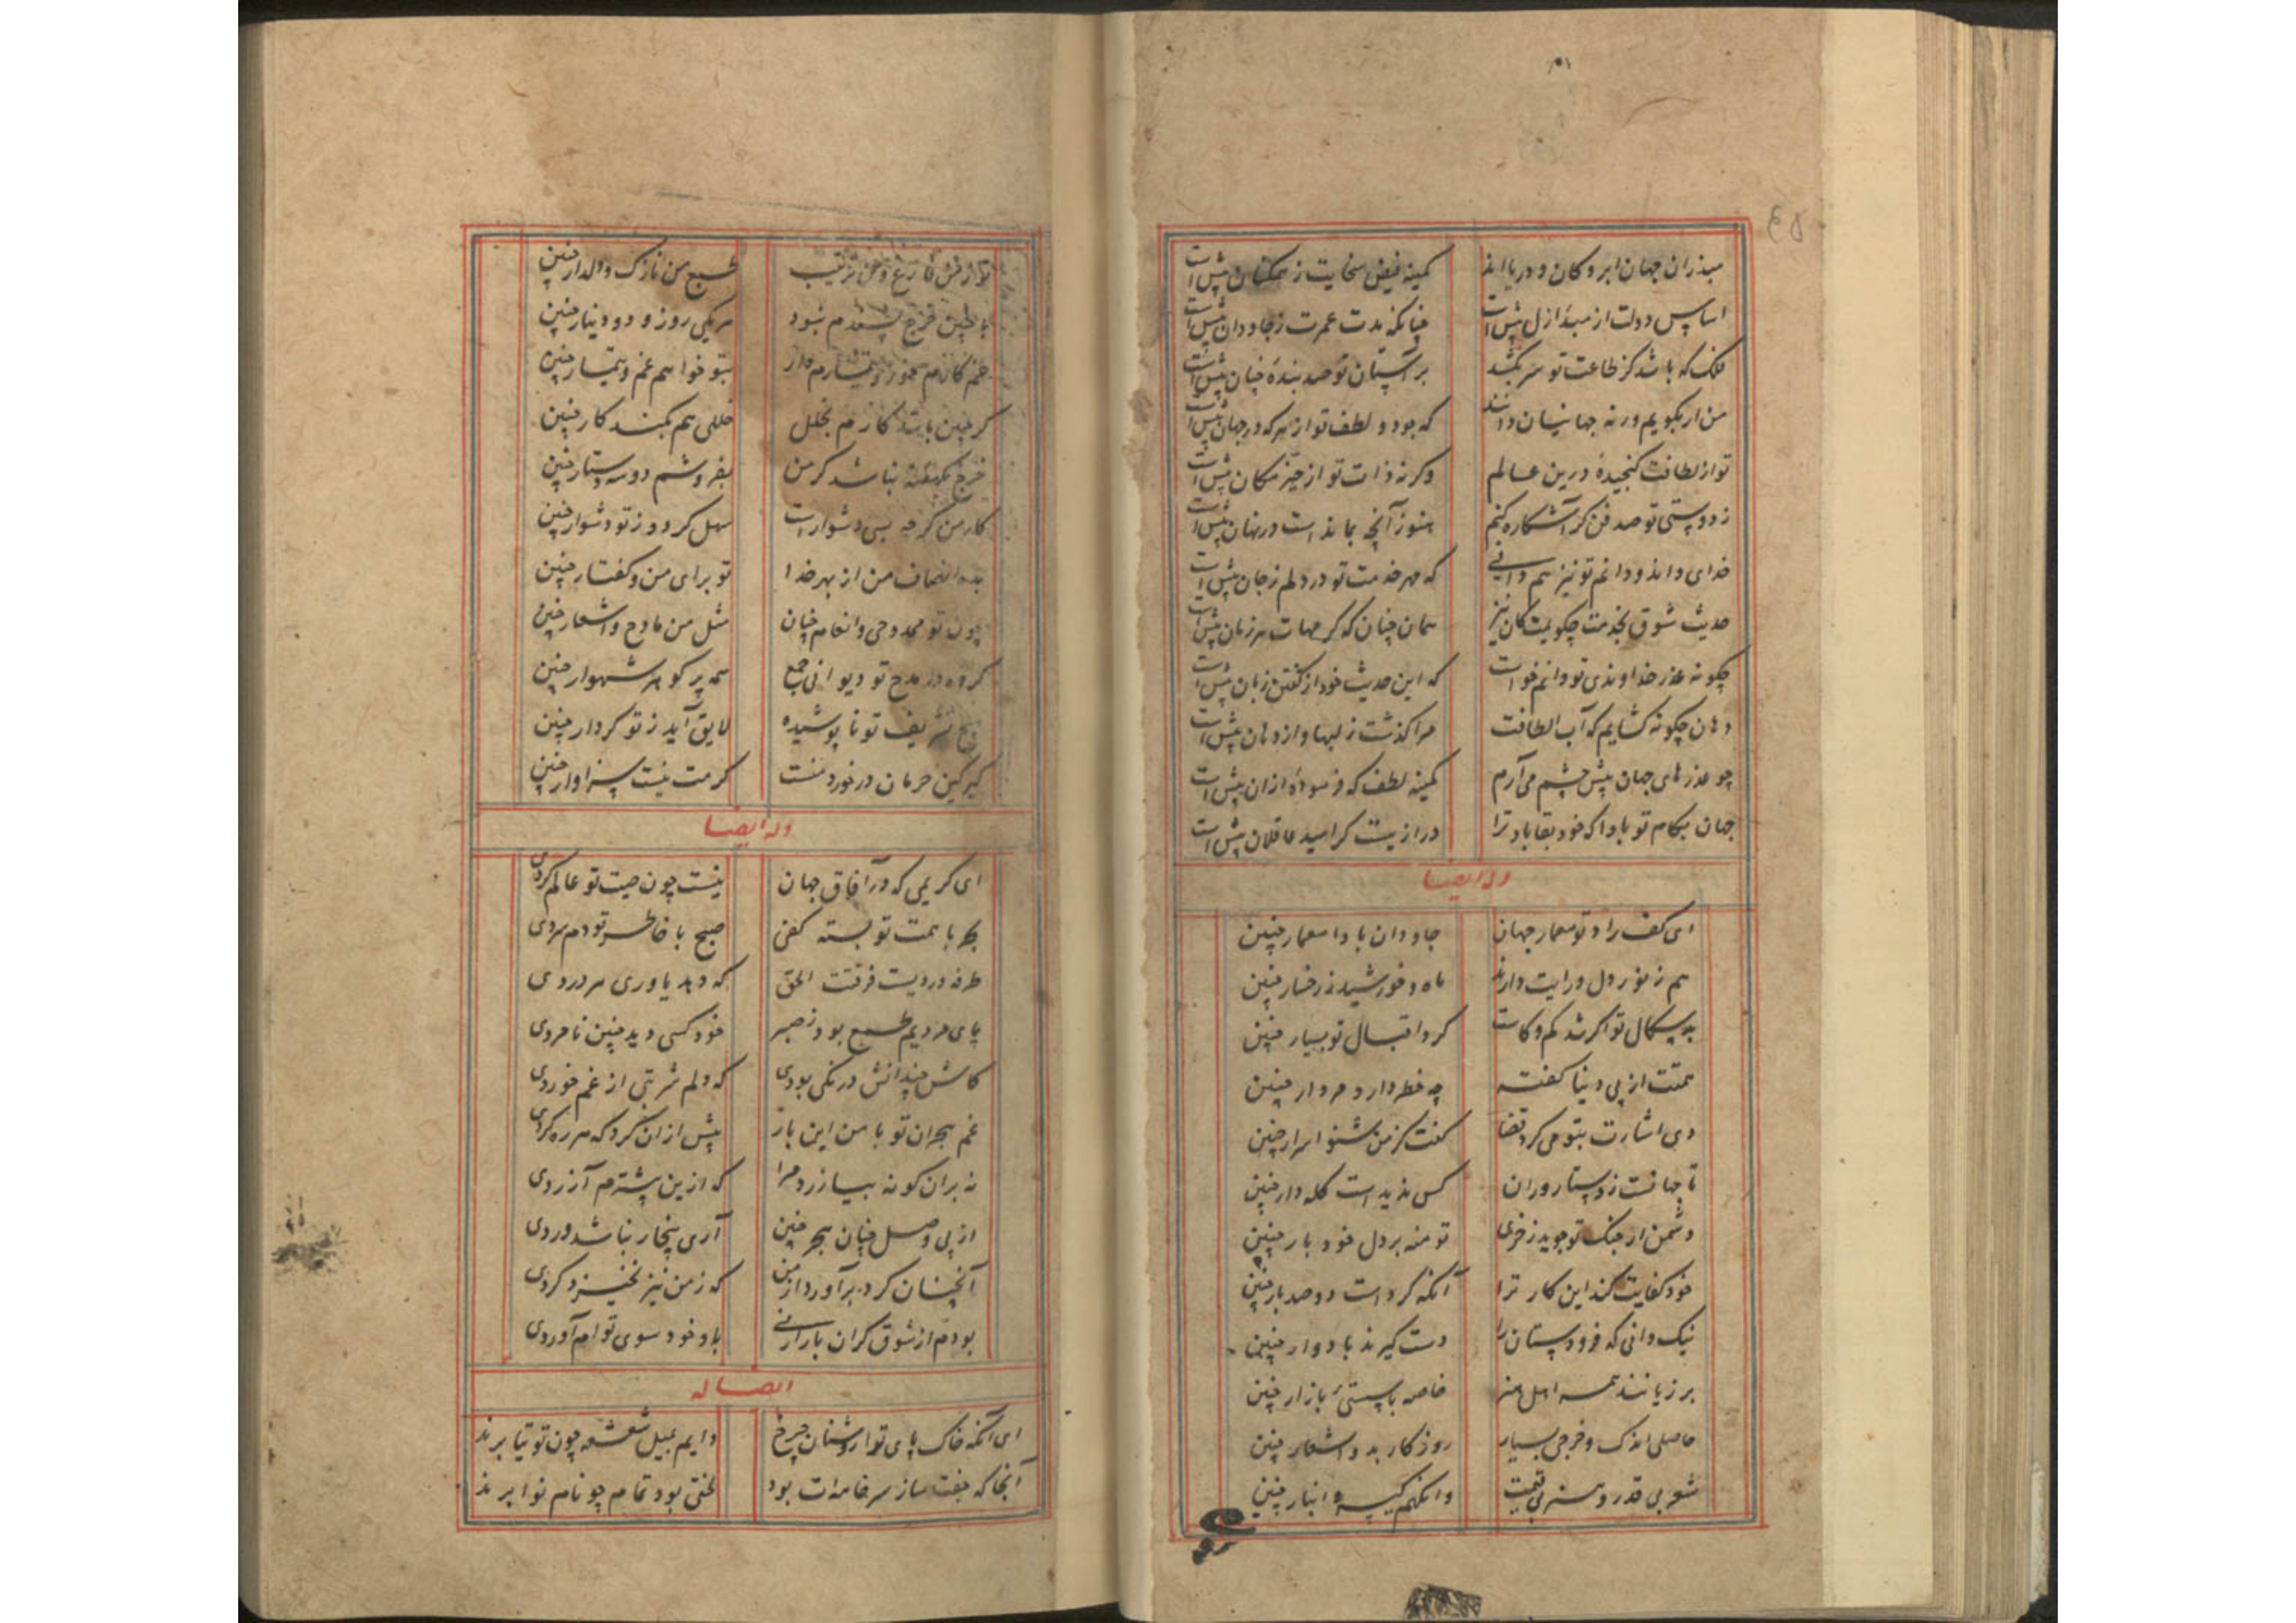 ۵۱
۶۵
مبذران جهان ابر و کان و دریااند کمینه فیض سخایت ز همکنان پیش است
اساس دولت از مبدأ ازل پیش است چنانکه مدت عمرت ز جاودان پیش است
فلک که باشد کز طاعت تو سر بکشد بر آستان تو صد بنده چنان پیش است
من ار بگویم ورنه جهانیان دانند که جود و لطف تو از هر که در جهان پیش است
تو از لطافت کنجیده درین عالم وکرنه ذات تو از حیز مکان پیش است
ز دوستی تو صد فن کر آشکاره کنم هنوز آنچه بماندست در نهان پیش است
خدای داند و دانم تو نیز هم دانی که مهر خدمت تو در دلم ز جان پیش است
حدیث شوق بخدمت چکویمت کان نیز همان چنان که کرمهات هر زمان پیش است
چکونه عذر خداوندی تو دانم خواست که این حدیث خود از کفتن زبان پیش است
دهان چکونه کشایم که آب الطافت مرا کذشت ز لبها و از دهان پیش است
چو عذرهای جهان پیش چشم می آرم کمینه لطف که فرموده ازان پیش است
جهان بکام تو بادا که خود بقا باد ترا درازیست کز امید عاقلان پیش است
وله ایضا
ای کف راد تو معمار جهان جاودان بادا معمار چنین
هم ز نور دل و رایت دارند ماه و خورشید ز رخسار چنین
بدسکال تو اکر شد کم و کاست کرد اقبال تو بسیار چنین
همتت از پی دنیا کفته چه خطر دارد مردار چنین
دی اشارت بتو می کرد قضا کفت کز من شنو اسرار چنین
تا جهانست ز دستار وران کس ندیدست کله دار چنین
دشمن از جنک تو جوید زخری تو منه بر دل خود بار چنین
خود کفایت کند این کار ترا آنکه کردست دو صد بار چنین
نیک دانی که فرودستان را دست کیرند با دوار چنین
بر زیانند همه اهل هنر خاصه با پستی بازار چنین
حاصلی اندک و خرجی بسیار روزکار بد و اشعار چنین
شعر بی قدر و هنر بی قیمت وانکهم کیسه و انبار چنین
تو ازمن فارغ و من ترتیب طبع من نازک و دلدار چنین
با چنین خرج پسندم نبود هر یکی روز و دو دینار چنین
غم کارم مخور و تیمارم دار بتو خواهم غم و تیمار چنین
کر چنین باشد کارم بخلل خللی هم بکند کار چنین
خرج یکهفته نباشد کر من بفروشم دو سه دستار چنین
کار من کر چه بسی دشوارست سهل کردد ز تو دشوار چنین
بده انصاف من از بهر خدا تو برای من و کفتار چنین
چون تو ممدوحی و انعام چنان مثل من مادح و اشعار چنین
کرده در مدح تو دیوانی جمع همه پر کوهر شهوار چنین
هیچ تشریف تو نا پوشیده لایق آید ز تو کردار چنین
کیر کین حرمان در خورد منست کرمت نیست سزاوار چنین
وله ایضا
ای کریمی که در آفاق جهان نیست چون صیت تو عالم کردی
بحر با همت تو بسته کفی صبح با خاطر تو دم سردی
طرفه دردیست فرقتت الحق که دهد یاوری هر دردی
پای مردیم طمع بود ز صبر خود کسی دید چنین نامردی
کاش چندانش درنکی بودی که دلم شربتی از غم خوردی
غم هجران تو با من این بار پیش از آن کرد که هر ره کردی
نه بران کونه بیازرد مرا که ازین بیشترم آزردی
از پی وصل چنان هجر چنین آری بیخار نباشد وردی
آنچنان کرد برآورد از من که ز من نیز نخیزد کردی
بودم از شوق کران بارانی باد خود سوی توام آوردی
ایضا له
ای آنکه خاک پای تو را روشنان چرخ دایم بمیل شعشعه چون توتیا برند
آنجا که جفت ساز سر خامه‌ات بود لختی بود تمام چو نام نوا برند